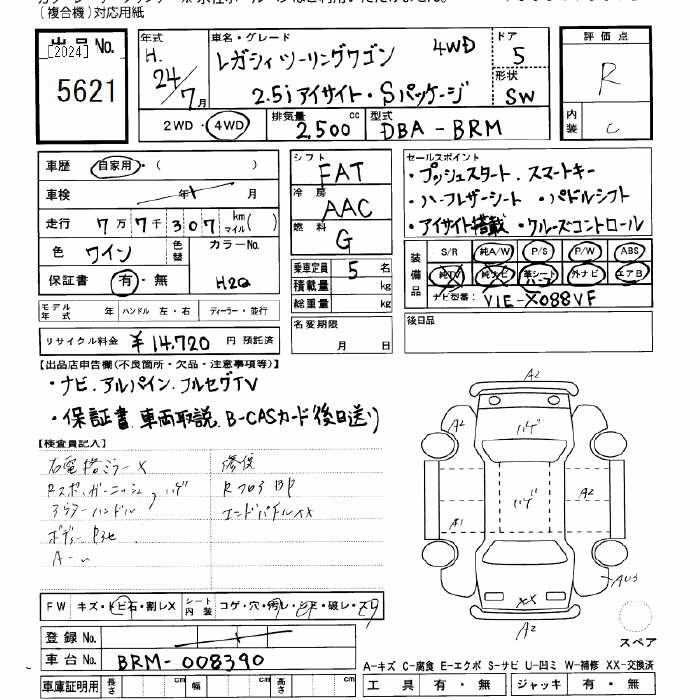 (複合機)対応用紙
出品No.
[2024]
5621
年式
H.
24/7月
車名・グレード
レガシィ ツーリングワゴン 4WD
2.5i アイサイト・Sパッケージ
ドア
5
形状
SW
2WD・4WD
排気量 2,500 cc
型式 DBA-BRM
評価点
R
内装
C
車歴 自家用・( )
車検 年 月
走行 7万7千307 km マイル( )
色 ワイン 色替 カラーNo.
保証書 有・無 H2Q
モデル年式 年 ハンドル 左・右 ディーラー・並行
リサイクル料金 ¥14,720 円 預託済
シフト
FAT
冷房
AAC
燃料
G
乗車定員 5 名
積載量 kg
総重量 kg
名変期限
月 日
セールスポイント
・プッシュスタート.スマートキー
・ハーフレザーシート ・パドルシフト
・アイサイト搭載・クルーズコントロール
装備品
S/R 純A/W P/S P/W ABS
純TV 純ナビ 革シート ハーフ 外ナビ エアB
ナビ型番: VIE-X088VF
後日品
【出品店申告欄(不良箇所・欠品・注意事項等)】
・ナビ.アルパイン.フルセグTV
・保証書.車両取説.B-CASカード後日送り
【検査員記入】
右電格ミラーX
ハゲ
ボディー
A-
修復
エンドパネルXX
FW キズ・トビ石・割レX
シート内装 コゲ・穴・汚レ・シミ・破レ・スレ
登録No.
車台No. BRM-008390
車庫証明用 長さ cm 幅 cm 高さ cm
A2
A2
ハゲ
A2
ハゲ
A1
XX
A2
AU3
スペア
A-キズ C-腐食 E-エクボ S-サビ U-凹ミ W-補修 XX-交換済
工具 有・無 ジャッキ 有・無